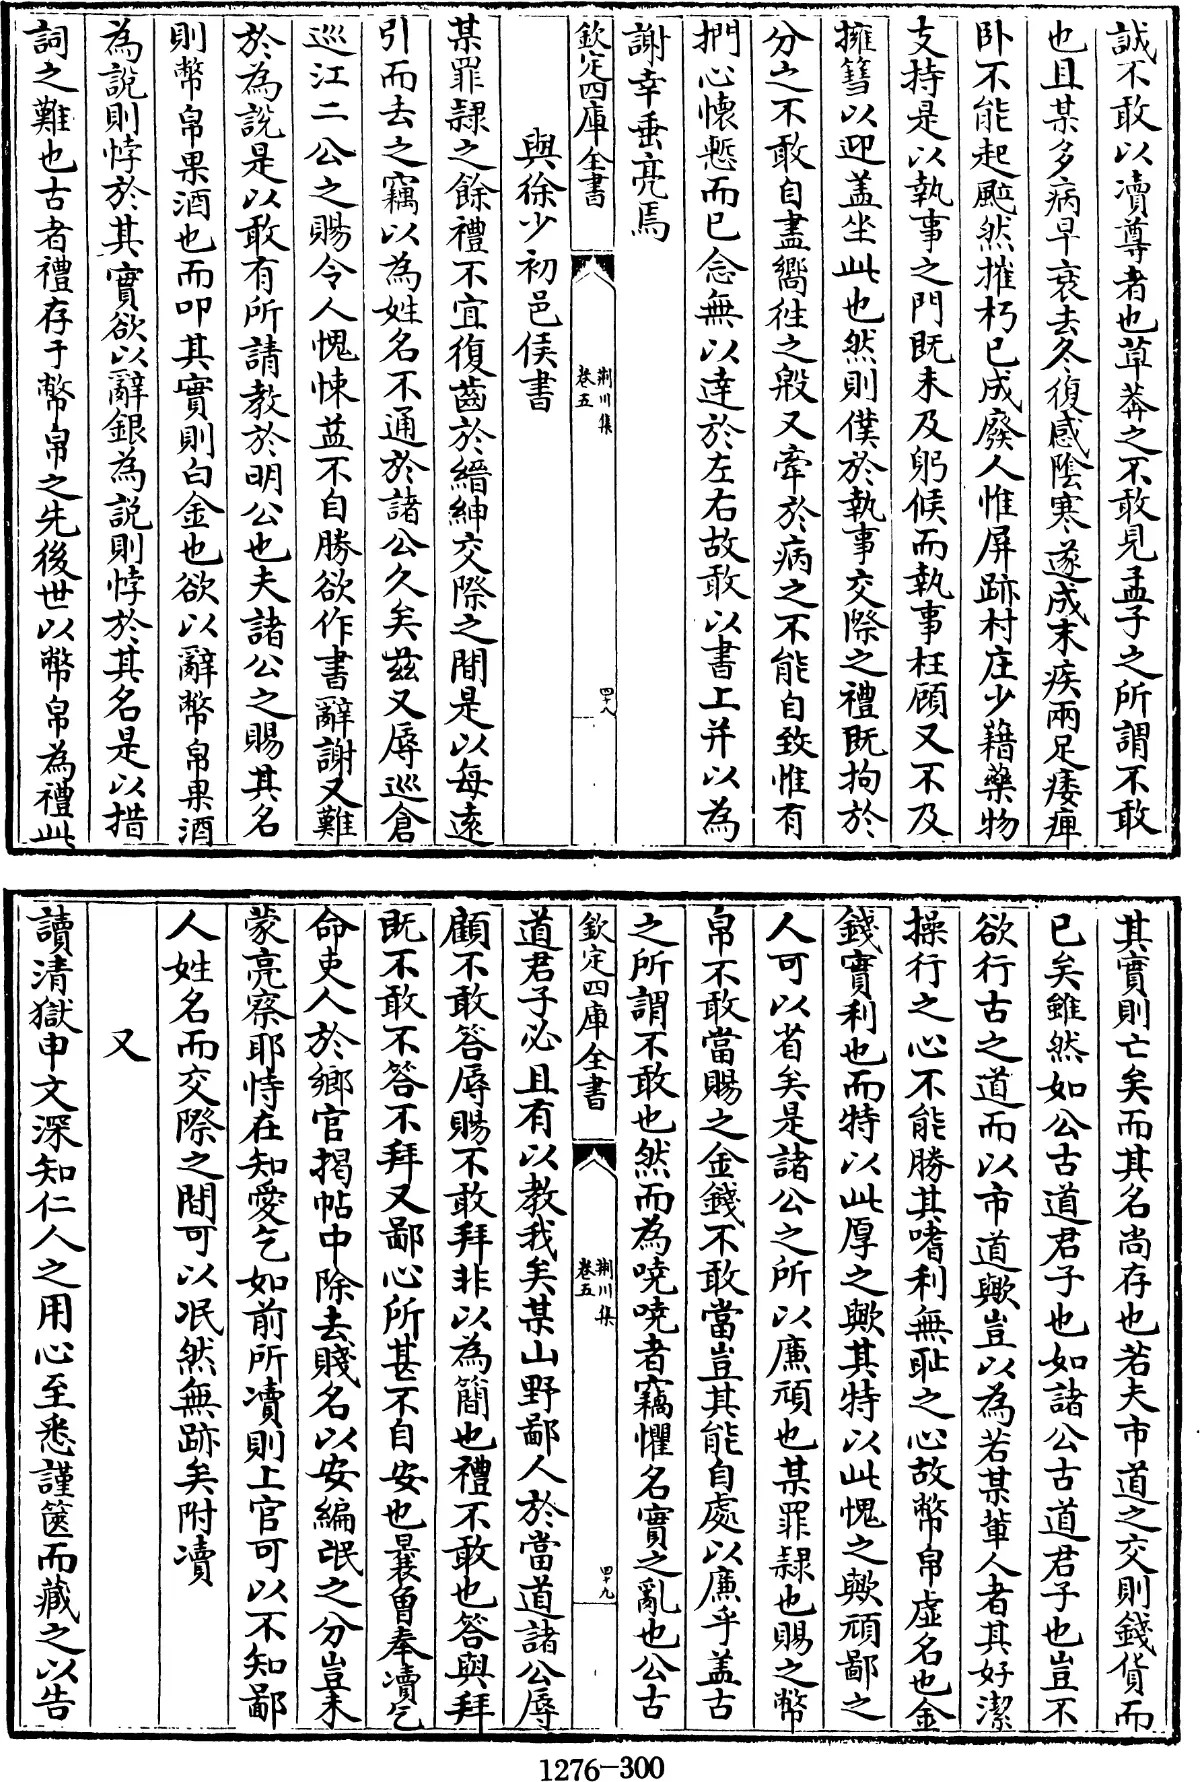 誠不敢以凟尊者也草莽之不敢見孟子之所謂不敢
也且某多病早衰去冬復感陰寒遂成末疾兩足痿痺
卧不能起颱然摧朽已成廢人惟屏跡村庄少藉藥物
支持是以執事之門既未及躬候而執事枉顧又不及
擁篲以迎盖坐此也然則僕於執事交際之禮既拘於
分之不敢自盡嚮徃之般又牽於病之不能自致惟有
捫心懐慙而已念無以達於左右故敢以書上并以為
謝幸垂亮焉
欽定四庫全書
荆川集
卷五
四十八
與徐少初邑侯書
某罪隸之餘禮不宜復齒於縉紳交際之間是以每逺
引而去之竊以為姓名不通於諸公久矣兹又辱巡倉
巡江二公之賜令人愧悚益不自勝欲作書辭謝又難
於為說是以敢有所請教於明公也夫諸公之賜其名
則幣帛果酒也而叩其實則白金也欲以辭幣帛果酒
為說則悖於其實欲以辭銀為説則悖於其名是以措
詞之難也古者禮存于幣帛之先後世以幣帛為禮此
其實則亡矣而其名尚存也若夫市道之交則錢貨而
已矣雖然如公古道君子也如諸公古道君子也豈不
欲行古之道而以市道歟豈以為若某軰人者其好潔
操行之心不能勝其嗜利無恥之心故幣帛虚名也金
錢實利也而特以此厚之歟其特以此愧之歟頑鄙之
人可以省矣是諸公之所以廉頑也某罪隸也賜之幣
帛不敢當賜之金錢不敢當豈其能自處以廉乎盖古
之所謂不敢也然而為嘵嘵者竊懼名實之亂也公古
欽定四庫全書
荆川集
卷五
四十九
道君子必且有以教我矣某山野鄙人於當道諸公辱
顧不敢答辱賜不敢拜非以為簡也禮不敢也答與拜
既不敢不答不拜又鄙心所甚不自安也曩曽奉凟乞
命吏人於鄉官揭帖中除去賤名以安編氓之分豈未
蒙亮察耶恃在知愛乞如前所凟則上官可以不知鄙
人姓名而交際之間可以泯然無跡矣附凟
又
讀清獄申文深知仁人之用心至悉謹篋而藏之以告
1276-300